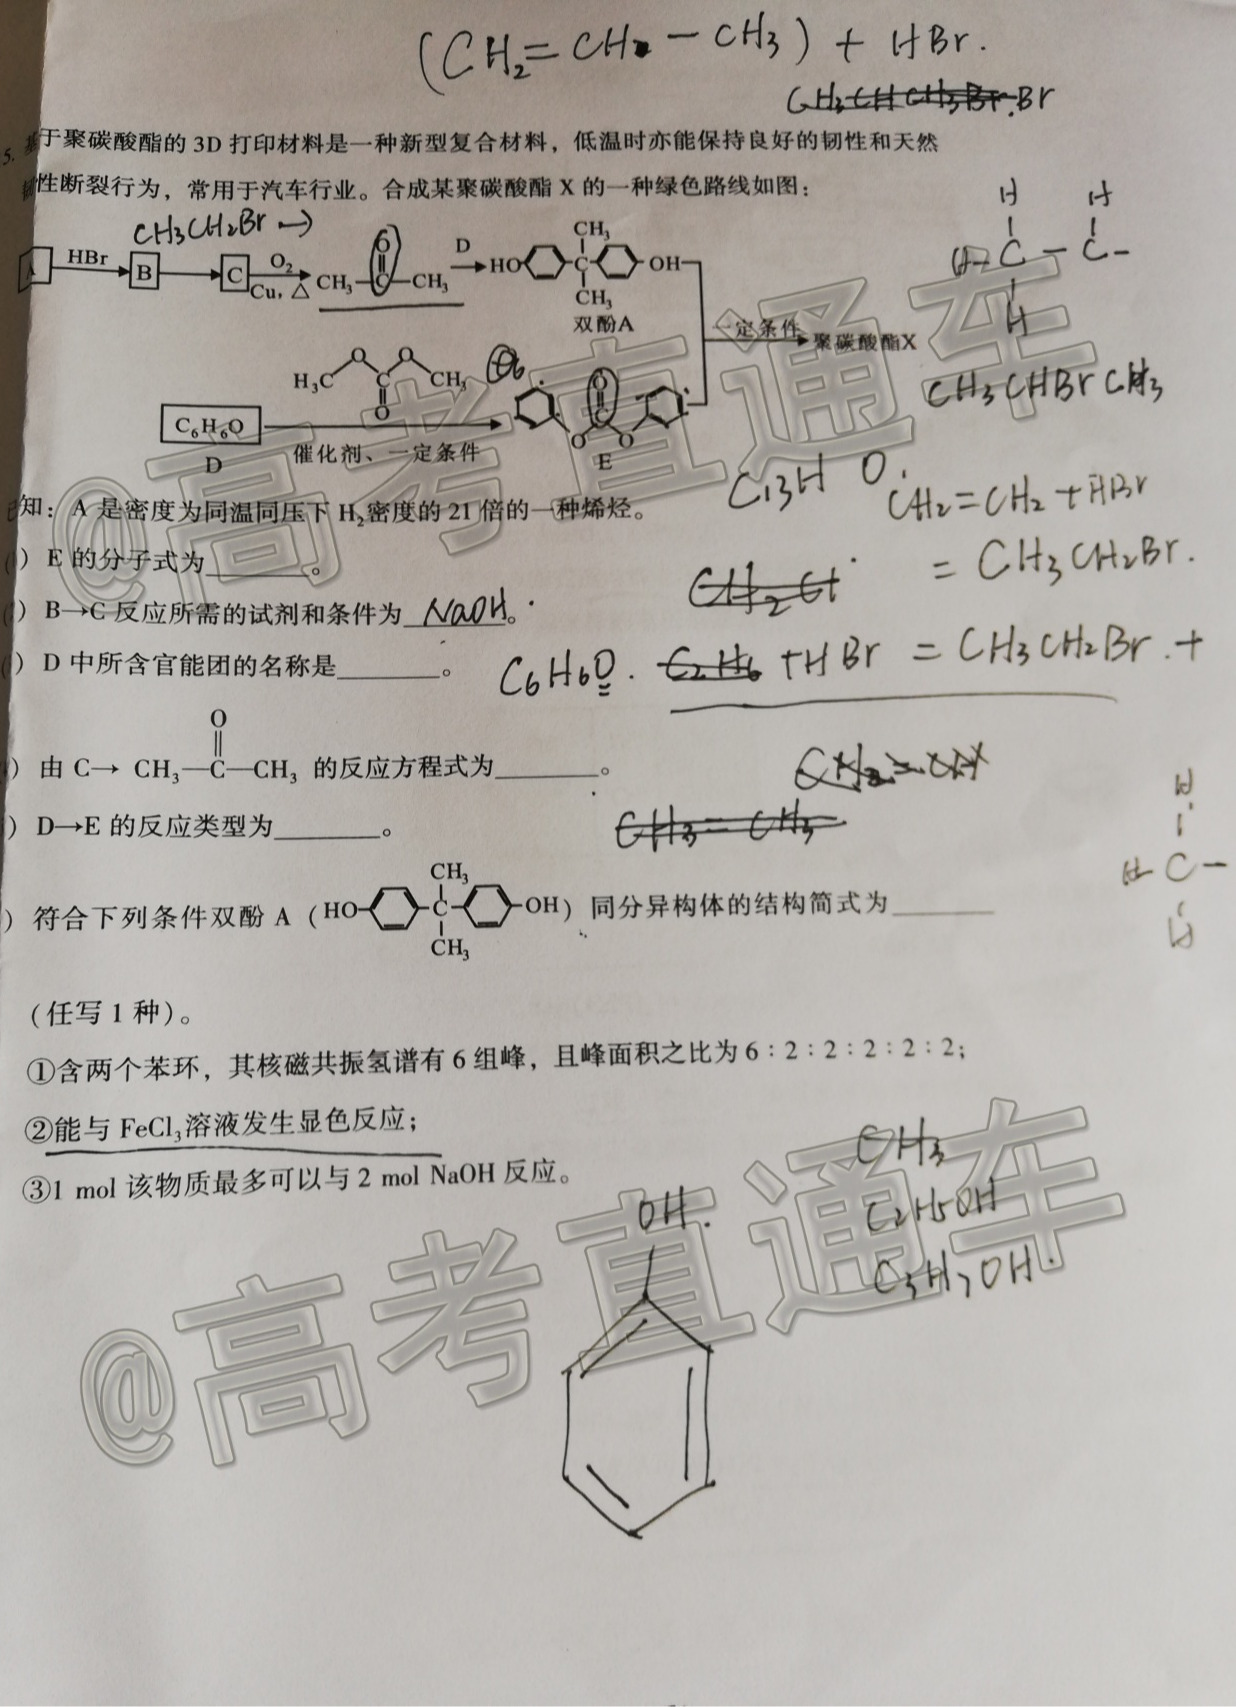 (CH₂=CH₂-CH₃)+HBr.
Br
5.基于聚碳酸酯的3D打印材料是一种新型复合材料，低温时亦能保持良好的韧性和天然
性断裂行为，常用于汽车行业。合成某聚碳酸酯X的一种绿色路线如图：
CH₃CH₂Br→
A HBr B C O₂ Cu，△ CH₃—C—CH₃ O D HO CH₃ C CH₃ OH
双酚A
一定条件 聚碳酸酯X
H₃C O O CH₃ C O
C₆H₆O
D 催化剂、一定条件 O C O O E
H H
H-C-C-
H
CH₃CHBrCH₃
C13H O.
CH₂=CH₂+HBr
=CH₃CH₂Br.
已知：A是密度为同温同压下H₂密度的21倍的一种烯烃。
）E的分子式为______。
）B→C反应所需的试剂和条件为NaOH。
）D中所含官能团的名称是______。
C₆H₆O. C₂H₆+HBr=CH₃CH₂Br.+
）由C→ CH₃—C—CH₃ O 的反应方程式为______。
CH₃=CH₃
）D→E的反应类型为______。
H
H-C-
H
）符合下列条件双酚A（HO CH₃ C CH₃ OH）同分异构体的结构简式为______
（任写1种）。
①含两个苯环，其核磁共振氢谱有6组峰，且峰面积之比为6∶2∶2∶2∶2∶2；
②能与FeCl₃溶液发生显色反应；
③1 mol该物质最多可以与2 mol NaOH反应。
CH₃
C₂H₅OH
C₃H₇OH.
OH.
@高考直通车
@高考直通车